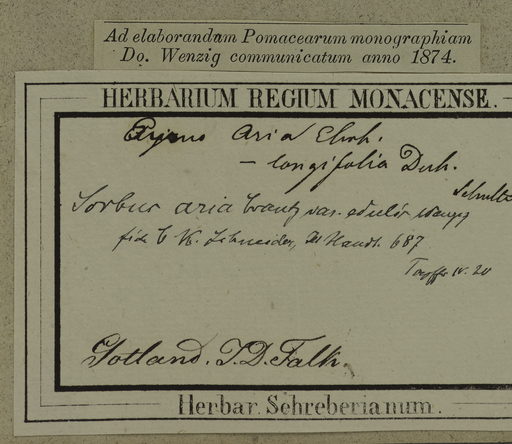 Ad elaborandum Pomacearum monographiam
Do. Wenzig communicatum anno 1874.
HERBARIUM REGIUM MONACENSE.
Pyrus Aria Ehrh.
— longifolia Duh.
Sorbus aria Crantz var. edulis Wenzig
fide C. K. Schneider, Handb. 687
IV. 20
Gotland. J. D. Falk.
Herbar. Schreberianum.